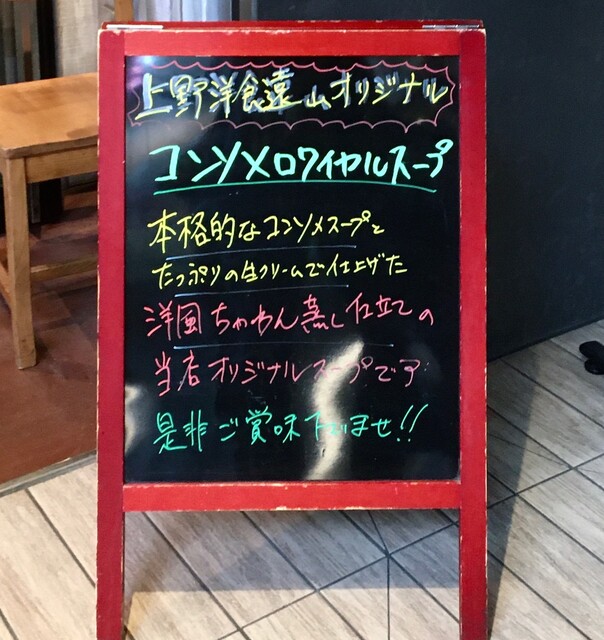 上野洋食遠山オリジナル
コンソメロワイヤルスープ
本格的なコンソメスープと
たっぷりの生クリームで仕上げた
洋風ちゃわん蒸し仕立ての
当店オリジナルスープです
是非ご賞味下さいませ!!